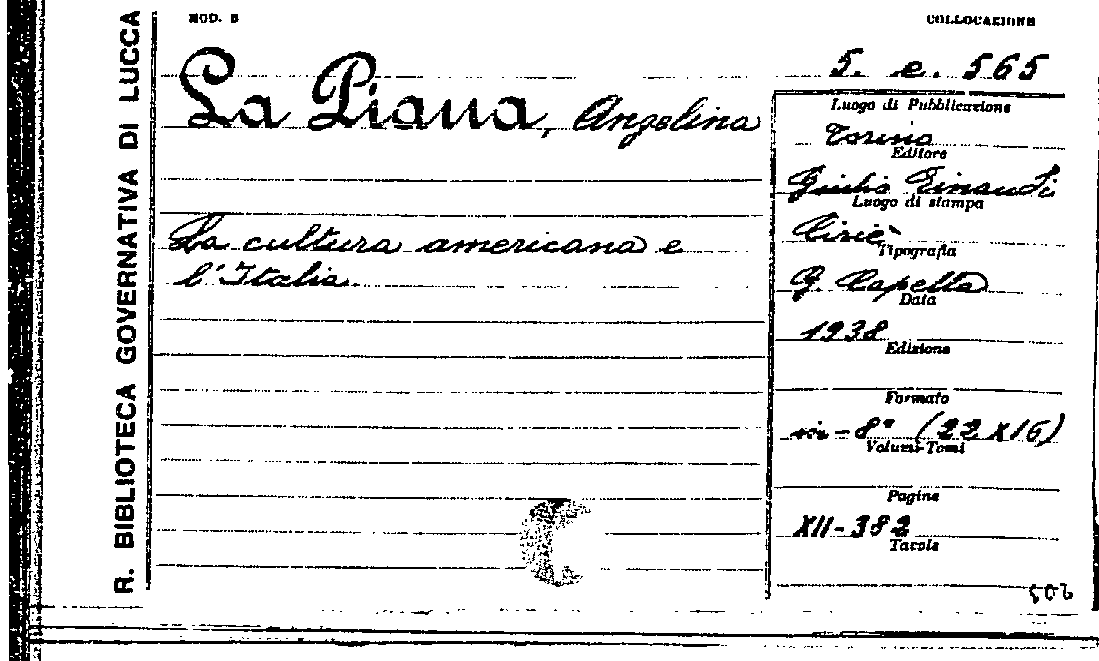 R. BIBLIOTECA GOVERNATIVA DI LUCCA
MOD. B
COLLOCAZIONE
5. e. 565
La Piana, Angelina
La cultura americana e
l'Italia.
Luogo di Pubblicazione
Torino
Editore
Giulio Einaudi
Luogo di stampa
Ciriè
Tipografia
G. Capella
Data
1938
Edizione
Formato
in-8° (22X16)
Volumi-Tomi
Pagine
XII-382
Tavole